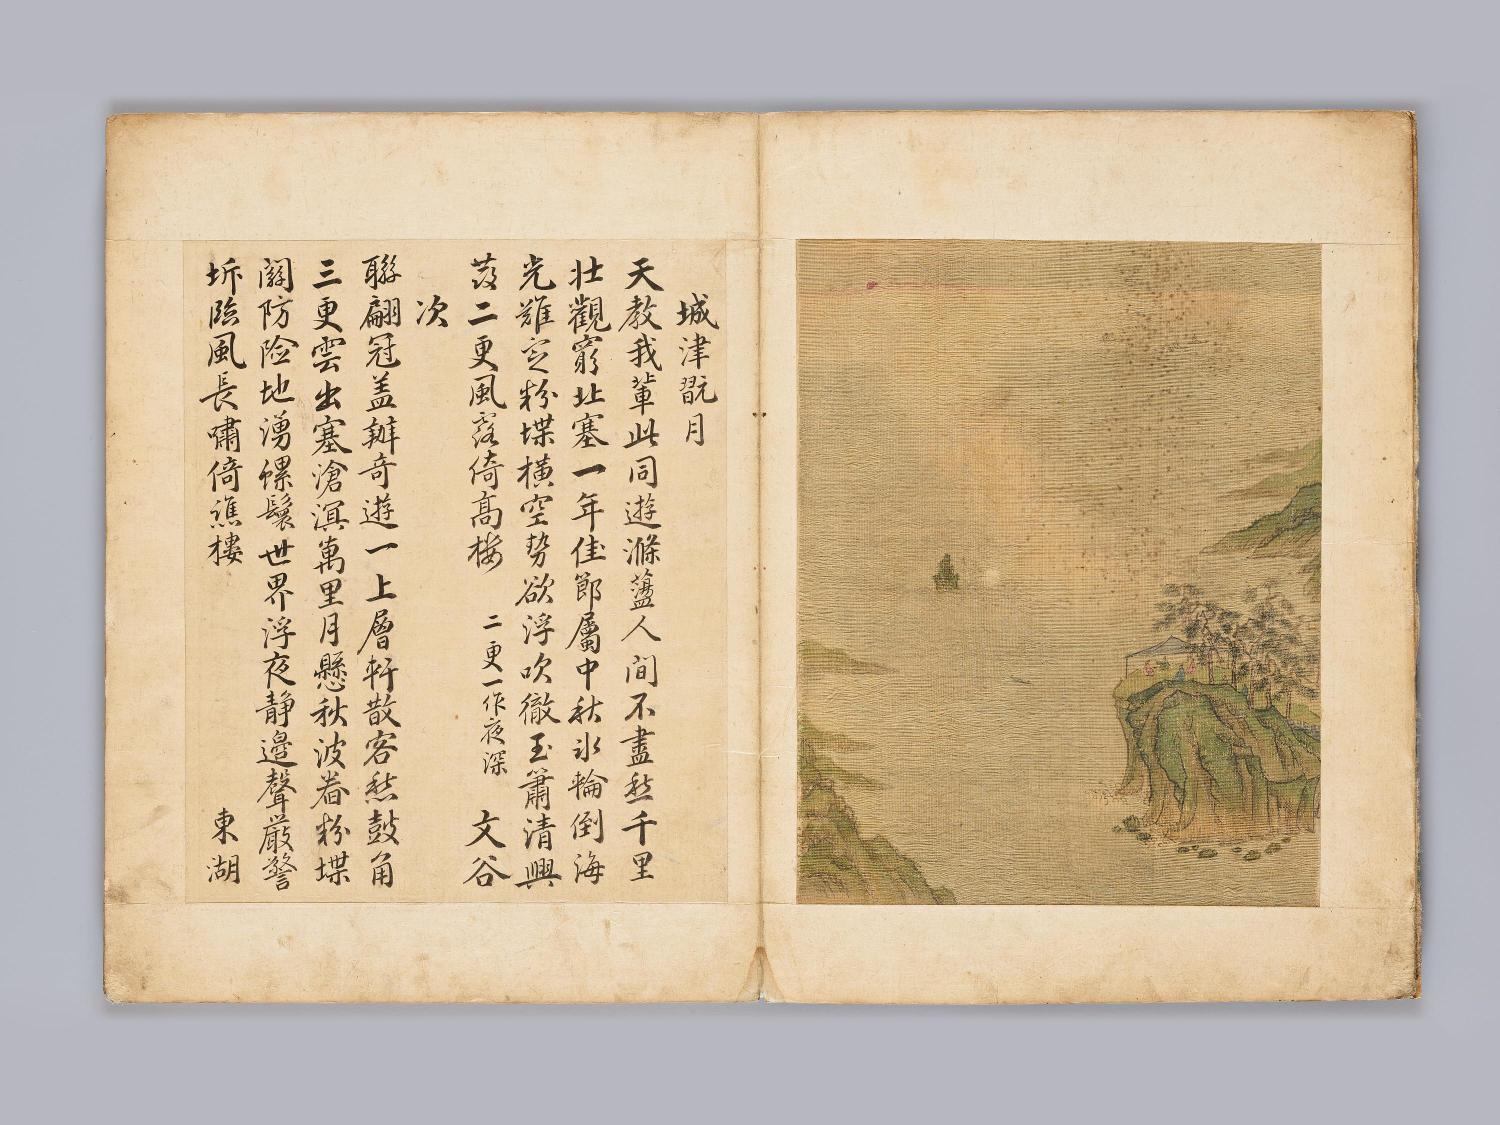 城津翫月
天教我輩此同遊滌蕩人間不盡愁千里
壯觀窮北塞一年佳節屬中秋氷輪倒海
光難定粉堞橫空勢欲浮吹徹玉簫清興
發二更風露倚高樓 二更一作夜深 文谷
次
聯翩冠盖辦奇遊一上層軒散客愁鼓角
三更雲出塞滄溟萬里月懸秋波春粉堞
關防險地湧螺鬟世界浮夜靜邊聲嚴警
柝臨風長嘯倚譙樓 東湖